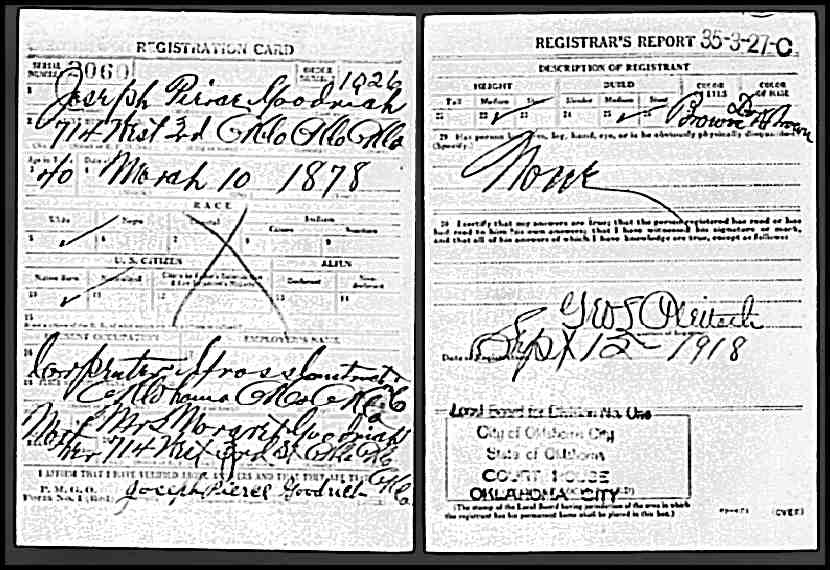 REGISTRATION CARD
SERIAL NUMBER 3060 ORDER NUMBER 1926
Joseph Pierce Goodrich
714 West 3rd Okla Okla Okla
Age in
40 March 10 1878
RACE
White Negro Oriental Indian
Citizen
5 6 7 8 9
U. S. CITIZEN ALIEN
Native Born Naturalized Declarant Non-declarant
10 11 12 13 14
15
PRESENT OCCUPATION EMPLOYER'S NAME
Carpenter Construction
Oklahoma Okla
Mrs Goodrich
714 West 3rd St Okla Okla
I AFFIRM THAT I HAVE VERIFIED ABOVE ANSWERS AND THAT THEY ARE TRUE
P. M. G. O.
Form No. 1 (Red) Joseph Pierce Goodrich
REGISTRAR'S REPORT 35-3-27-C
DESCRIPTION OF REGISTRANT
HEIGHT BUILD COLOR OF EYES COLOR OF HAIR
Tall Medium Short Slender Medium Stout
21 22 23 24 25 26 Brown Brown
29 Has person lost arm, leg, hand, eye, or is he obviously physically disqualified?
(Specify.)
None
30 I certify that my answers are true; that the person registered has read or has
had read to him his own answers; that I have witnessed his signature or mark,
and that all of his answers of which I have knowledge are true, except as follows:
Date of Registration Sept 12 - 1918
Local Board for Division No. One
City of Oklahoma City
State of Oklahoma
COURT HOUSE
OKLAHOMA CITY
(The stamp of the Local Board having jurisdiction of the area in which
the registrant has his permanent home shall be placed in this box.)
(OVER)